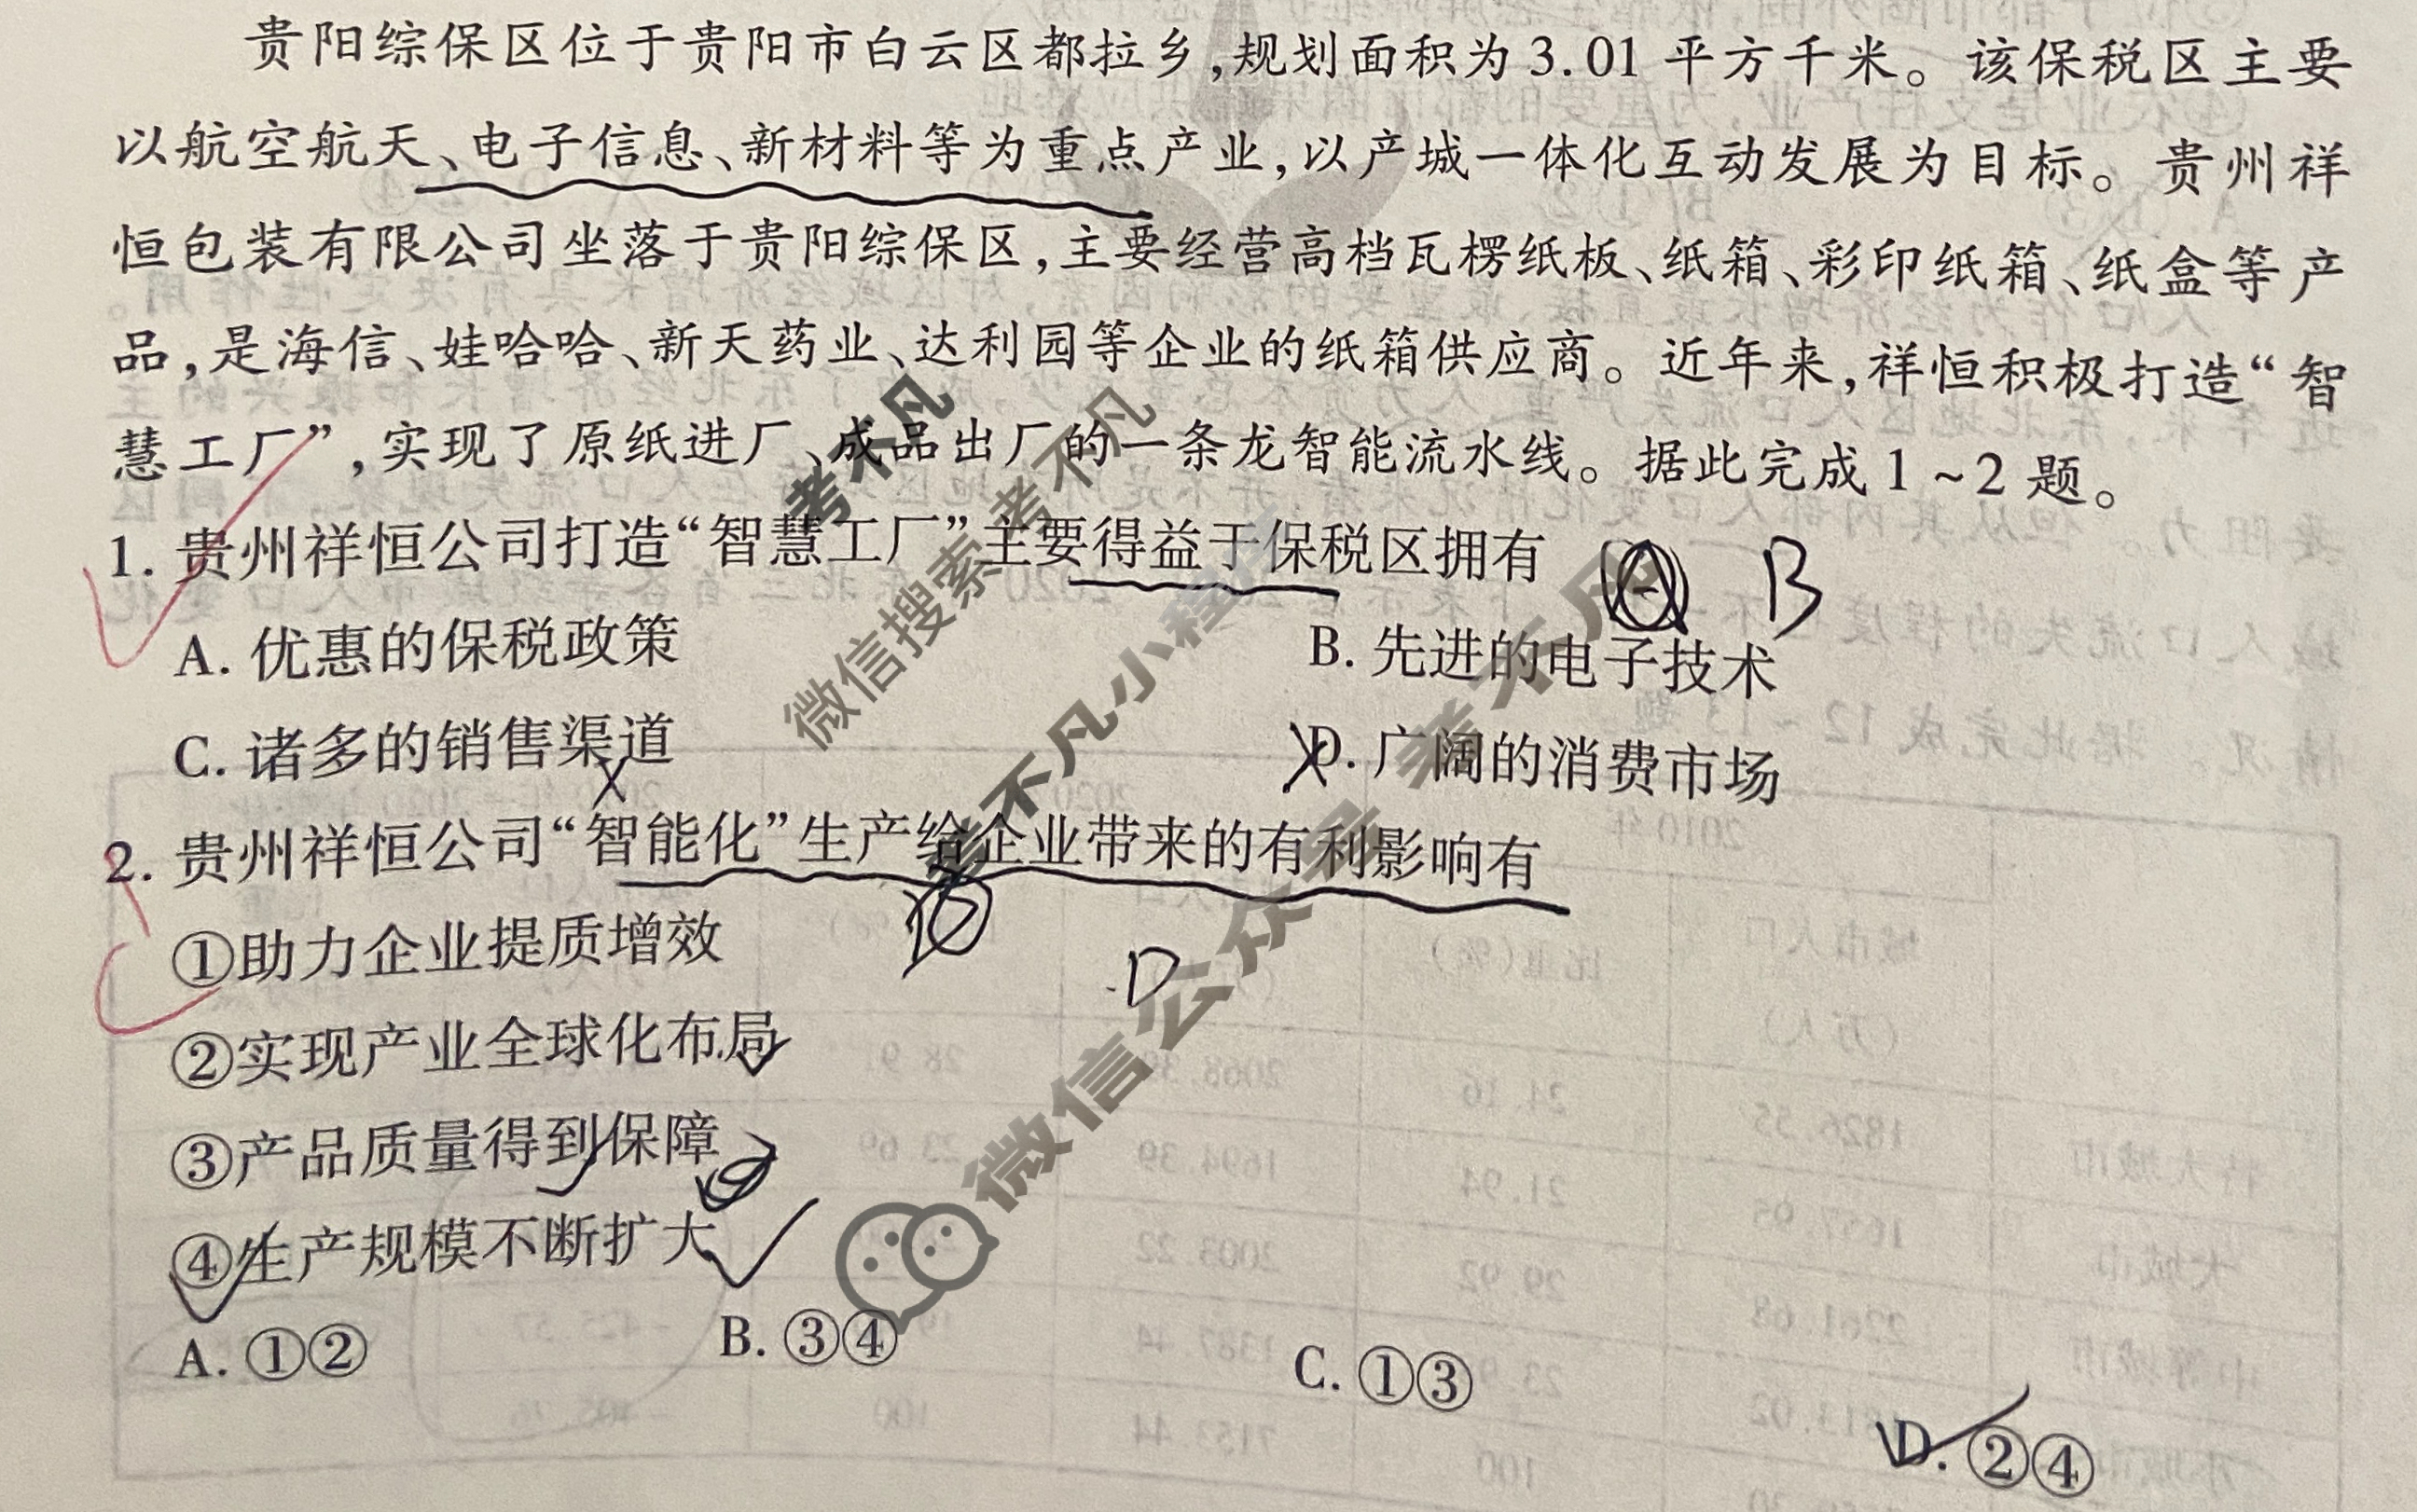 贵阳综保区位于贵阳市白云区都拉乡,规划面积为3.01平方千米。该保税区主要
以航空航天、电子信息、新材料等为重点产业,以产城一体化互动发展为目标。贵州祥
恒包装有限公司坐落于贵阳综保区,主要经营高档瓦楞纸板、纸箱、彩印纸箱、纸盒等产
品,是海信、娃哈哈、新天药业、达利园等企业的纸箱供应商。近年来,祥恒积极打造“智
慧工厂”,实现了原纸进厂、成品出厂的一条龙智能流水线。据此完成1~2题。
1. 贵州祥恒公司打造“智慧工厂”主要得益于保税区拥有 B
A. 优惠的保税政策 B. 先进的电子技术
C. 诸多的销售渠道 D. 广阔的消费市场
2. 贵州祥恒公司“智能化”生产给企业带来的有利影响有
D
①助力企业提质增效
②实现产业全球化布局
③产品质量得到保障
④生产规模不断扩大
A. ①② B. ③④ C. ①③ D. ②④
考不凡
微信搜索 考不凡
考不凡小程序
微信公众号 考不凡